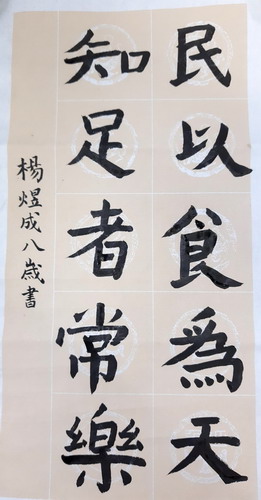 民以食為天
知足者常樂
楊煜成八歲書